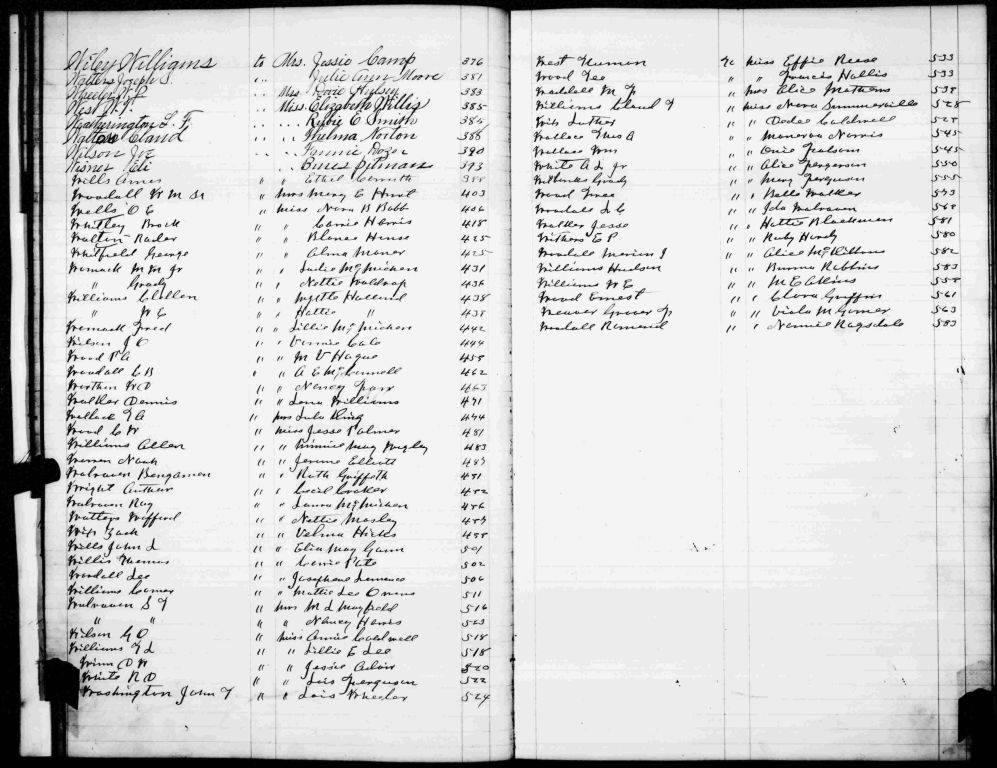 Wiley Williams to Mrs. Jessie Camp 376
Watters Joseph S. " Julie Ann Moore 381
Wheeler W. L. " Mrs. Dovie Hulsey 383
West W. T. " Miss. Elizabeth Willis 385
Weatherington L. F. " " Rubie C Smith 385
Walton Cland " " Thelma Norton 388
Wilson Joe " " Fannie Dozer 390
Wisner Eli " " Pitmans 393
Wills Amos " " Ethel 388
Woodall W M Sr " Mrs Mary E Hunt 403
Wells O C " Miss Nora B Bobb 406
Whitley Brook " " Carrie Harris 418
Walton Rader " " Blanch House 425
Whitfield George " " Alma Maner 425
Womack M M Jr " " Sadie McMichen 431
" Grady " " Nettie Waldrop 436
Williams Clellen " " Myrtle Holland 438
" W E " " Hattie " 438
Womack Fred " " Lillie McMichen 442
Wilson J C " " Vennie Cale 444
Wood P A " " M V Hague 458
Woodall C B " " A C McConnell 462
Worthen W D " " Nancy Farr 463
Walker Dennis " " Lena Williams 471
Wallace T A " Mrs Lula King 474
Wood C W " Miss Jesse Palmer 481
Williams Allen " " Minnie May Wigley 483
Warren Noah " " Jennie Elliott 487
Walraven Bengamen " " Ruth Griffeth 491
Wright Arthur " " Cecil Croker 492
Walraven Ray " " Laura McMichen 496
Watters Wofford " " Nettie Mosley 497
Wix Zack " " Velma Hicks 498
Wills John L " " Eliza May Gann 501
Willis Thomas " " Pate 502
Woodall Lee " " Josephene 506
Williams Comer " " Mattie Lee Owens 511
Walraven S T " Mrs M L Mayfield 516
" " " " Nancy Harris 523
Wilson G O " Miss Annie Caldwell 518
Williams T L " " Lillie E Lee 518
Winn D W " " Jessie Adair 520
White R D " " Lois Ferguson 522
Washington John T " " Lois Wheeler 524
West Human To Miss Effie Reese 533
Wood Geo " " Francis Hollis 533
Waddell M J " Mrs Alice Mathews 538
Williams Cland T " Miss Nora Summerville 528
Wix Luther " " Dedee Caldwell 528
Wallace Thos A " " Manerva Norris 545
Wallace Wm " " Onie Fulsom 545
White A L Jr " " Alice Ferguson 550
Wilbanks Grady " " Mary Ferguson 555
Wood Fred " " Belle Walker 573
Woodall L C " " Ida Walraven 569
Walker Jesse " " Hattie Blackmon 581
Withers E P " " Ruby Hardy 580
Woodall Marion J " " Alice McKibbens 582
Williams Hudson " " Emma Robbins 583
Williams W E " " M E Akins 558
Wood Ernest " " Clora Griffin 561
Weaver Grover Jr " " Viola M Gomer 563
Woodall Remond " " Nannie Ragsdale 583